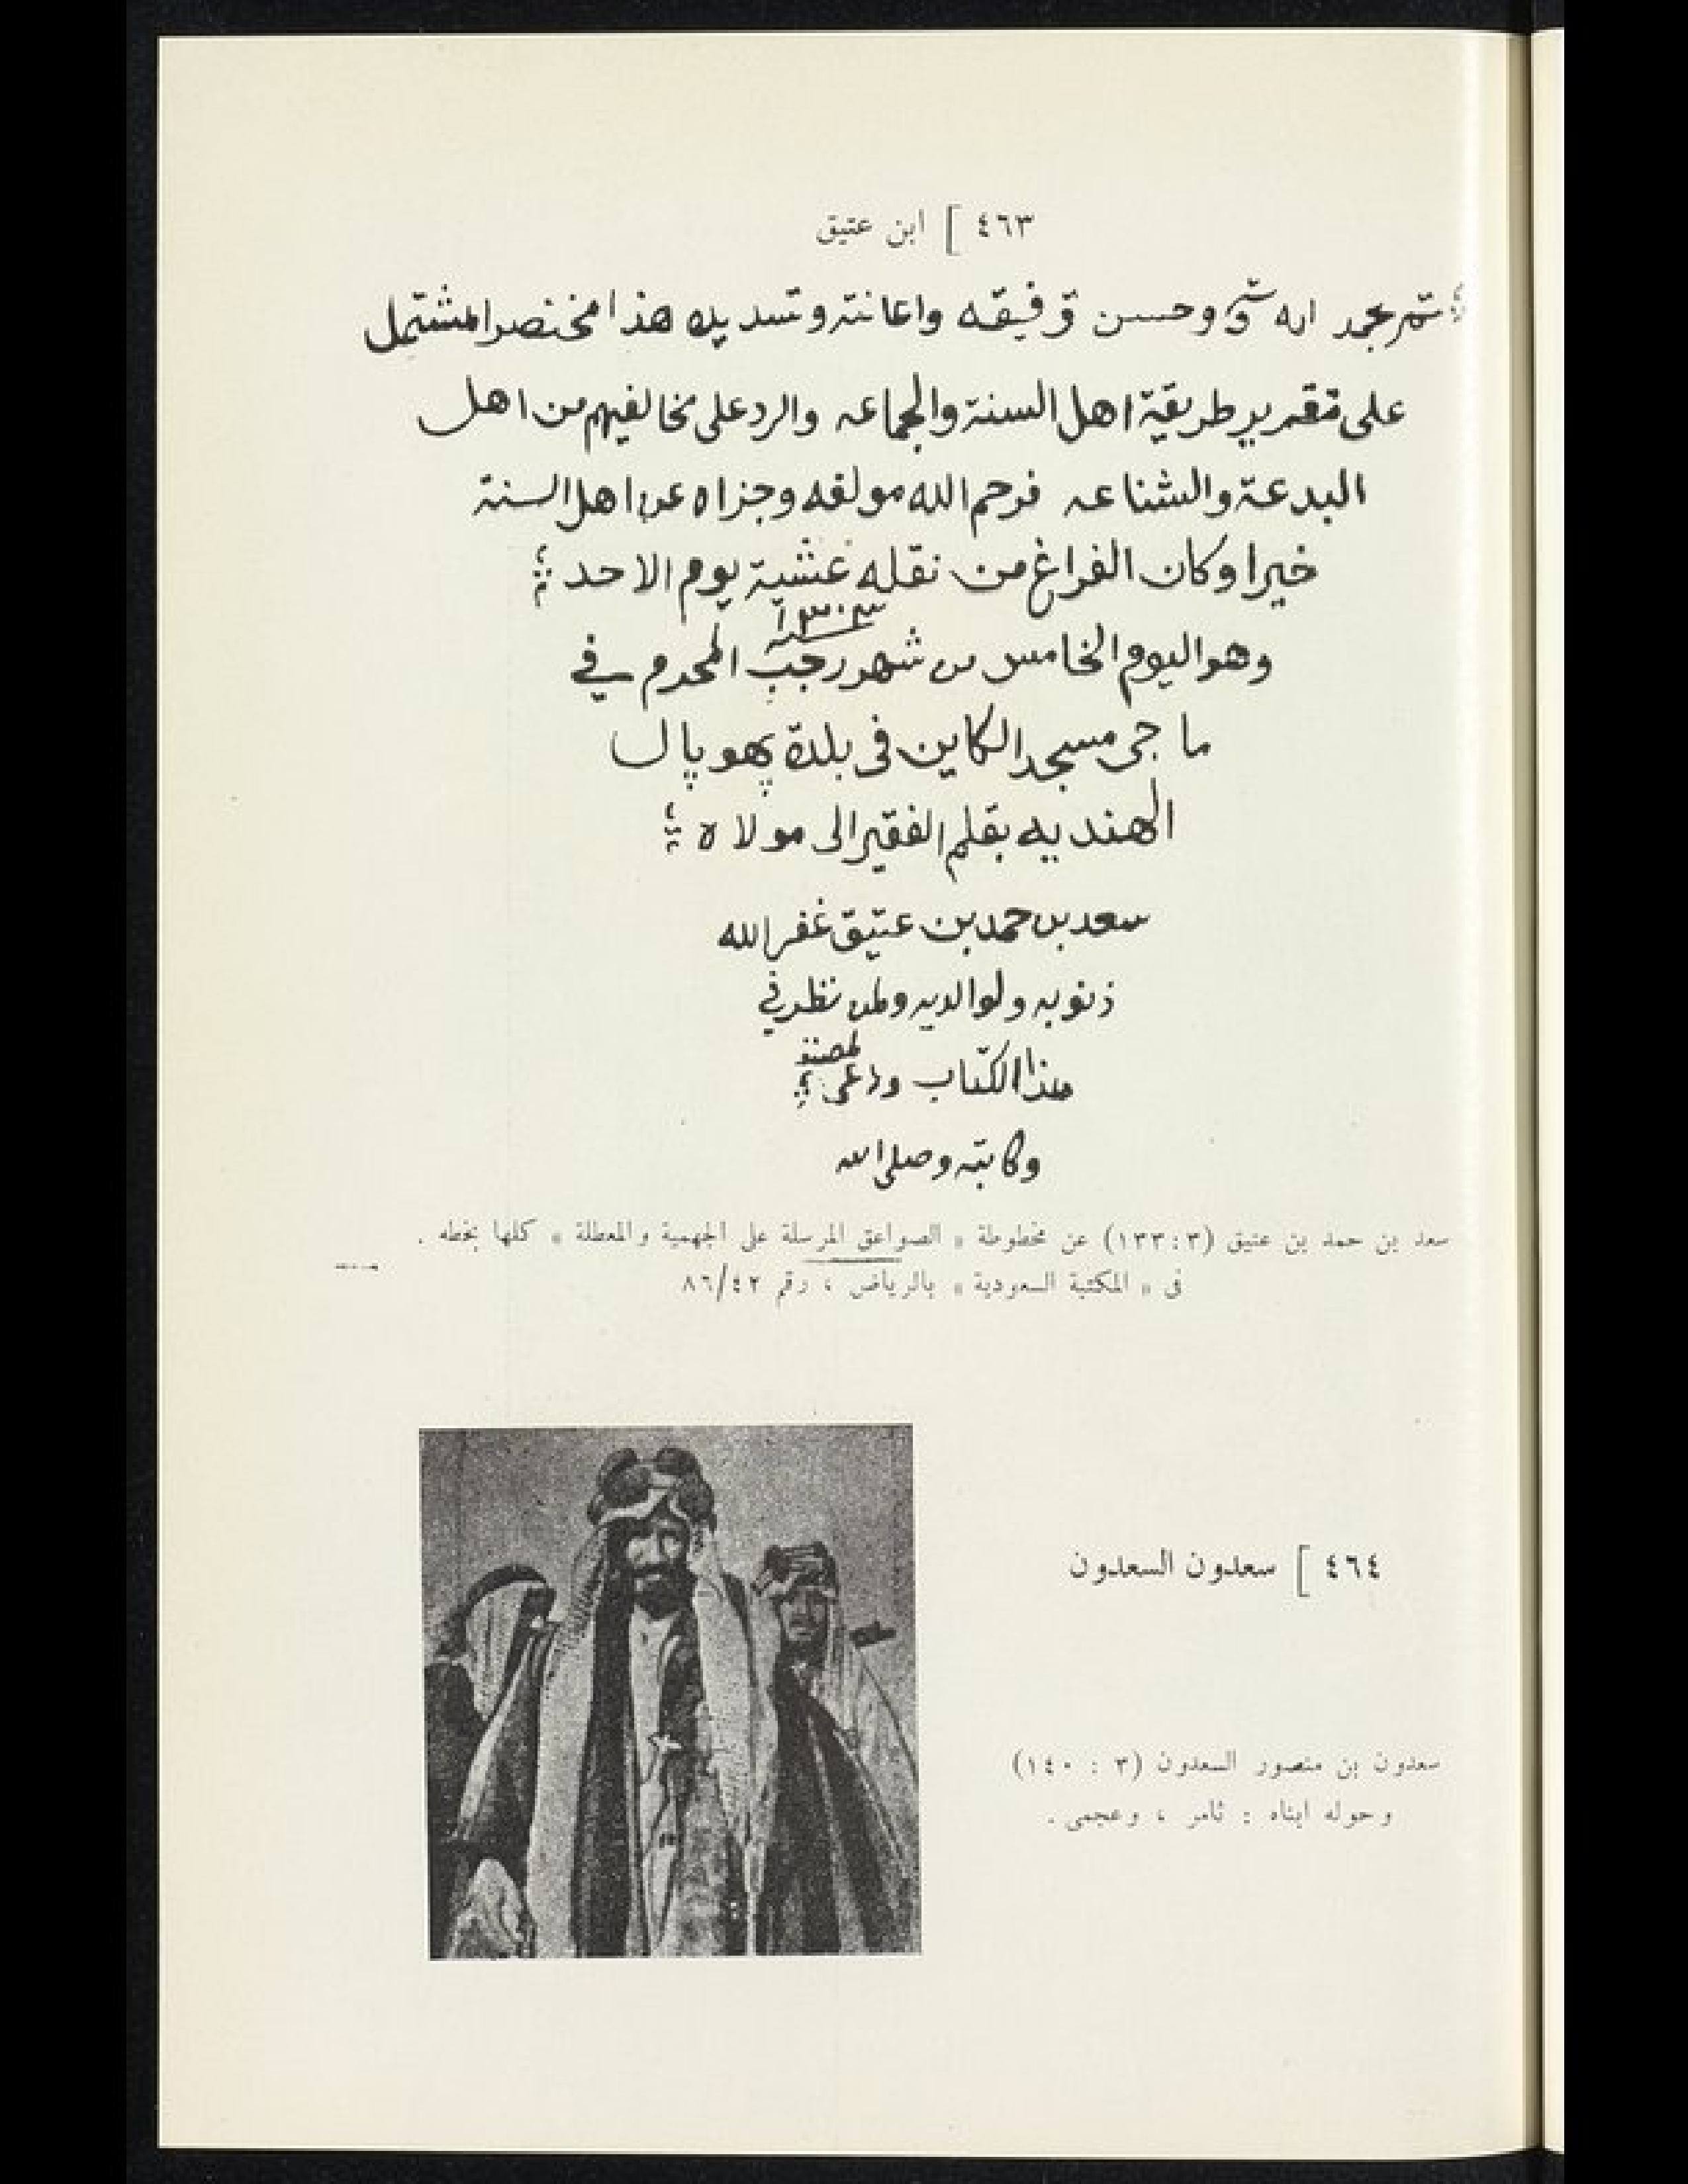 ٤٦٣ ] ابن عتيق
تم بحمد الله وحسن توفيقه واعانته وتسديده هذا مختصر المشتمل
على تقرير طريقة اهل السنة والجماعه والرد على مخالفيهم من اهل
البدعة والشناعه فرحم الله مولفه وجزاه عن اهل السنة
خيرا وكان الفراغ من نقله عشية يوم الاحد
١٣٠٣
وهو اليوم الخامس من شهر رجب المحرم في
ماجي مسجد الكاين في بلدة پهوپال
الهنديه بقلم الفقير الى مولاه
سعد بن حمد بن عتيق غفر الله
ذنوبه ولوالديه ولمن نظر في
هذا الكتاب ودعى لمصنفه
وكاتبه وصلى الله
سعد بن حمد بن عتيق (٣ : ١٣٣) عن مخطوطة « الصواعق المرسلة على الجهمية والمعطلة » كلها بخطه .
في « المكتبة السعودية » بالرياض ، رقم ٨٦/٤٢
٤٦٤ ] سعدون السعدون
سعدون بن منصور السعدون (٣ : ١٤٠)
وحوله ابناه : ثامر ، وعجمي .